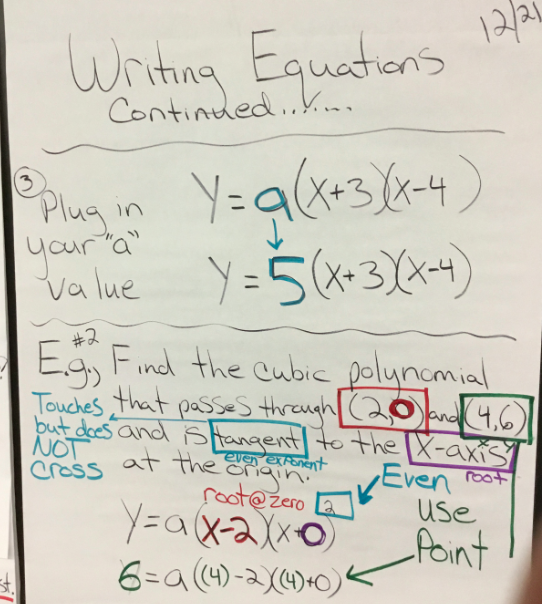 12/21
Writing Equations
Continued.......
③
Plug in
your "a"
value
Y = a(x+3)(x-4)
Y = 5(x+3)(x-4)
E.g., #2 Find the cubic polynomial
that passes through (2,0) and (4,6)
and is tangent to the x-axis
at the origin.
Touches
but does
NOT
Cross
even exponent
root
root@zero
Even
Y = a(x-2)(x+0)²
use
Point
6 = a((4)-2)((4)+0)
st.